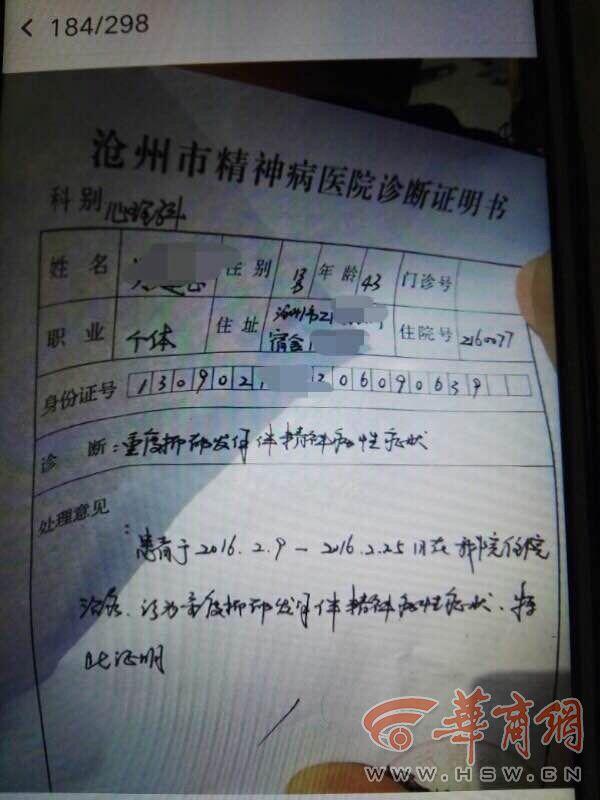 184/298
沧州市精神病医院诊断证明书
科别 心理科
姓名 性别 男 年龄 43 门诊号
职业 个体 住址 沧州市 宿舍 住院号 2160077
身份证号 130902 20609063
诊断：重度抑郁发作伴精神病性症状
处理意见：
患者于2016.2.9—2016.2.25日在我院住院
治疗、诊为重度抑郁发作伴精神病性症状、特
此证明
华商网
WWW.HSW.CN